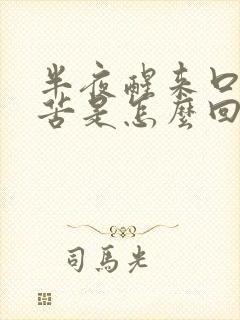 半夜醒来口
苦是怎麼回
司馬光